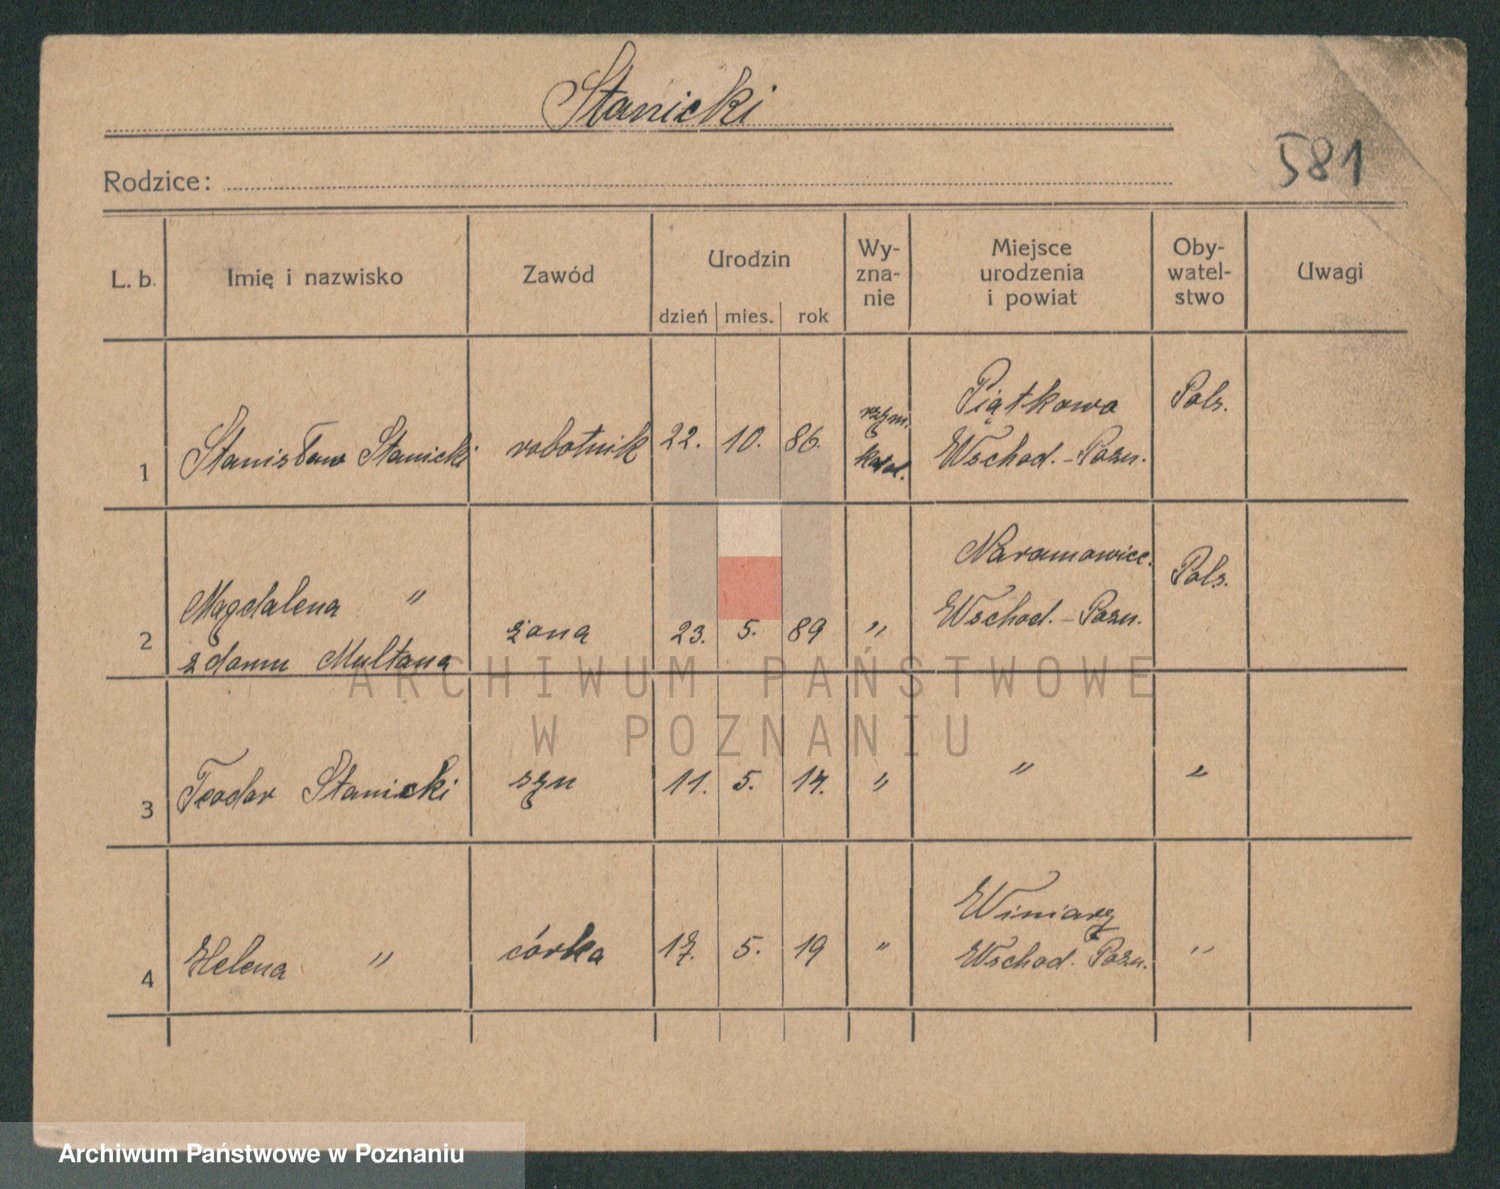 Stanicki
581
Rodzice:
L. b. Imię i nazwisko Zawód Urodzin Wy-zna-nie Miejsce urodzenia i powiat Oby-watel-stwo Uwagi
dzień mies. rok
1 Stanisław Stanicki robotnik 22. 10. 86. rzym. katol. Piątkowo Wschod.-Pozn. Pols.
2 Magdalena " z domu Multana żona 23. 5. 89 " Naramowice. Wschod.-Pozn. Pols.
3 Teodor Stanicki syn 11. 5. 14. " " "
4 Helena " córka 17. 5. 19 " Winiary Wschod. Pozn. "
ARCHIWUM PAŃSTWOWE
W POZNANIU
Archiwum Państwowe w Poznaniu